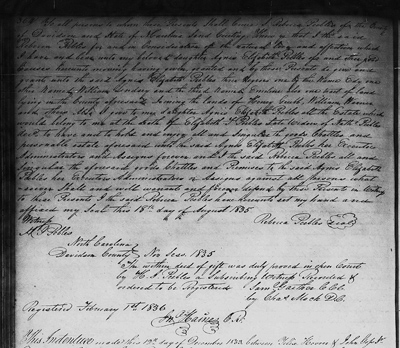 To all persons to whom these Presents Shall Come I Rebecca Peebles for the County
of Davidson and State of North Carolina Send Greeting Know ye that I the said
Rebecca Peebles for and in Consideration of the natural love and affection which
I have and bear unto my beloved daughter Agnes Elizabeth Peebles for and
grant unto the said Agnes Elizabeth Peebles three Negroes one by the Name
the other Named William Lindsey and the third Named Emeline also one tract of land
lying in the County aforesaid Joining the lands of Henry William Warner
and others Also I give to my daughter Agnes Elizabeth Peebles all the Estate which
would belong to me at the death of Elizabeth Peebles widow of Peebles
decd. to have and to hold and enjoy all and Singular the goods Chattles and
personable estate aforesaid unto the said Agnes Elizabeth Peebles her Executors
Administrators and Assigns forever and I the said Rebecca Peebles all and
Singular the aforesaid goods Chattles and Premises to the said Agnes Elizabeth
Peebles her Executors Administrators & Assigns against all Persons what
soever Shall and will warrant and forever defend by these Presents in witness
to these Presents I the said Rebecca Peebles have hereunto set my hand and
affixed my Seal this 18th day of August 1835
Witness
Rebecca Peebles Seal
Peebles
North Carolina
Davidson County Nov Sess 1835
The within deed of gift was duly proved in open Court
by Peebles a Subscribing witness Recorded &
ordered to be Registered
Saml Gaither C.C.C.
by Chas Mock D.C.
Registered February 1st 1836
Haines P.R.
This Indenture made this 19th day of December 1833 between Peter Hoover & John